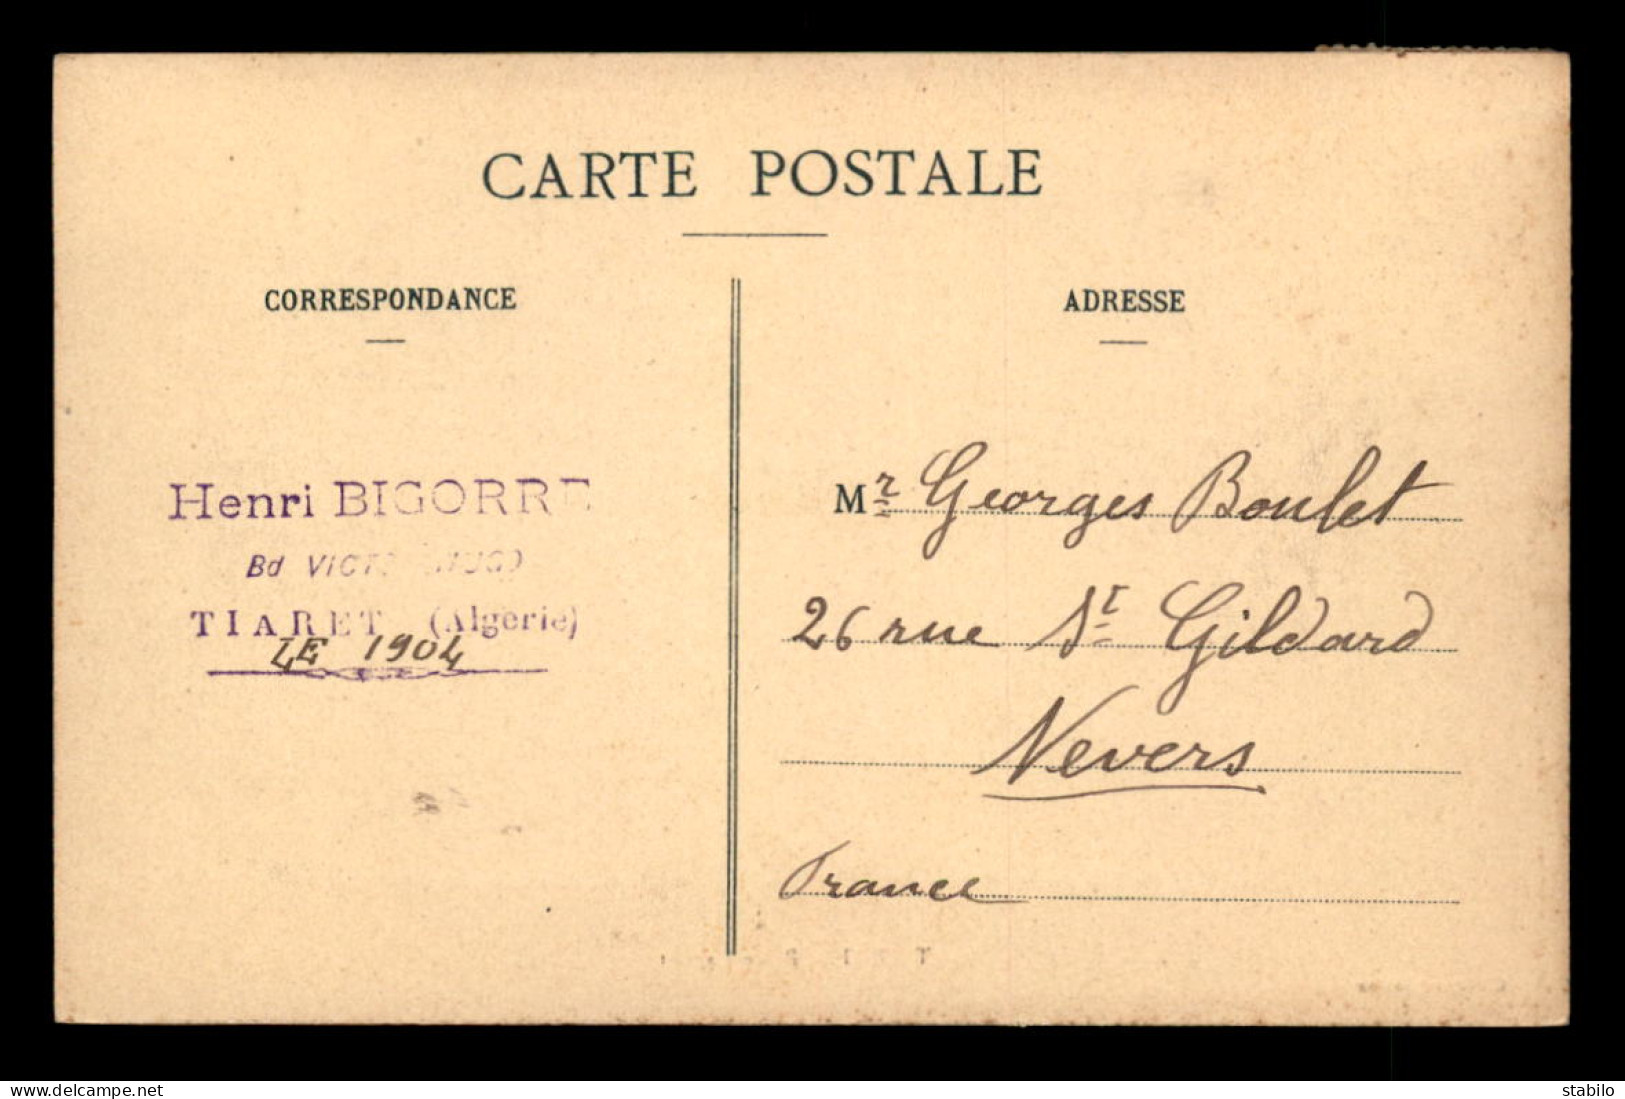 CARTE POSTALE
CORRESPONDANCE
ADRESSE
Henri BIGORRE
Bd VICTOR HUGO
TIARET (Algerie)
LE 1904
Mr Georges Boulet
26 rue St Gildard
Nevers
France
www.delcampe.net
stabilo